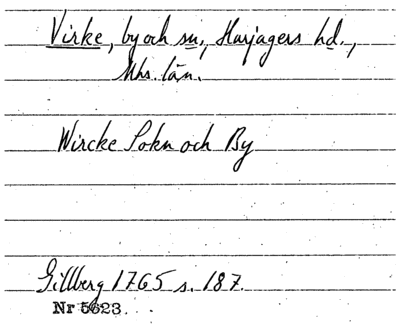 Virke, by och sn., Harjagers hd.,
Mhs. län.
Wircke Sokn och By
Gillberg 1765 s. 187.
Nr 5623.